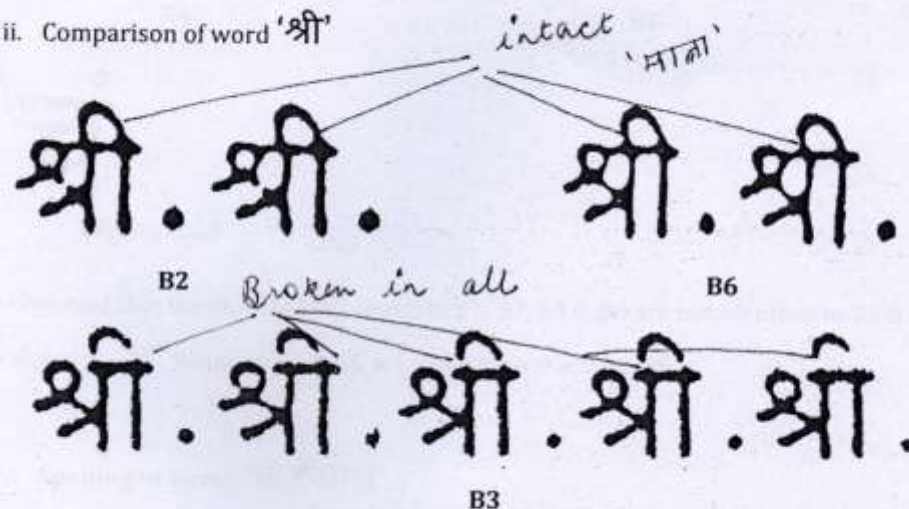 ii. Comparison of word 'श्री'
intact
'मात्रा'
श्री. श्री. श्री. श्री.
B2 B6
Broken in all
श्री. श्री. श्री. श्री. श्री.
B3